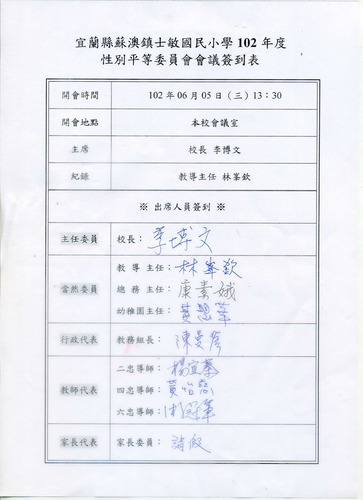 宜蘭縣蘇澳鎮士敏國民小學 102 年度
性別平等委員會會議簽到表
開會時間 102 年 06 月 05 日（三）13：30
開會地點 本校會議室
主席 校長 李博文
紀錄 教導主任 林峯欽
※ 出席人員簽到 ※
主任委員 校長： 李博文
教 導 主任： 林峯欽
當然委員 總 務 主任： 康素娥
幼稚園主任： 黃
行政代表 教務組長： 陳曼
二忠導師： 楊宜蓁
教師代表 四忠導師： 黃怡
六忠導師：
家長代表 家長委員： 請假